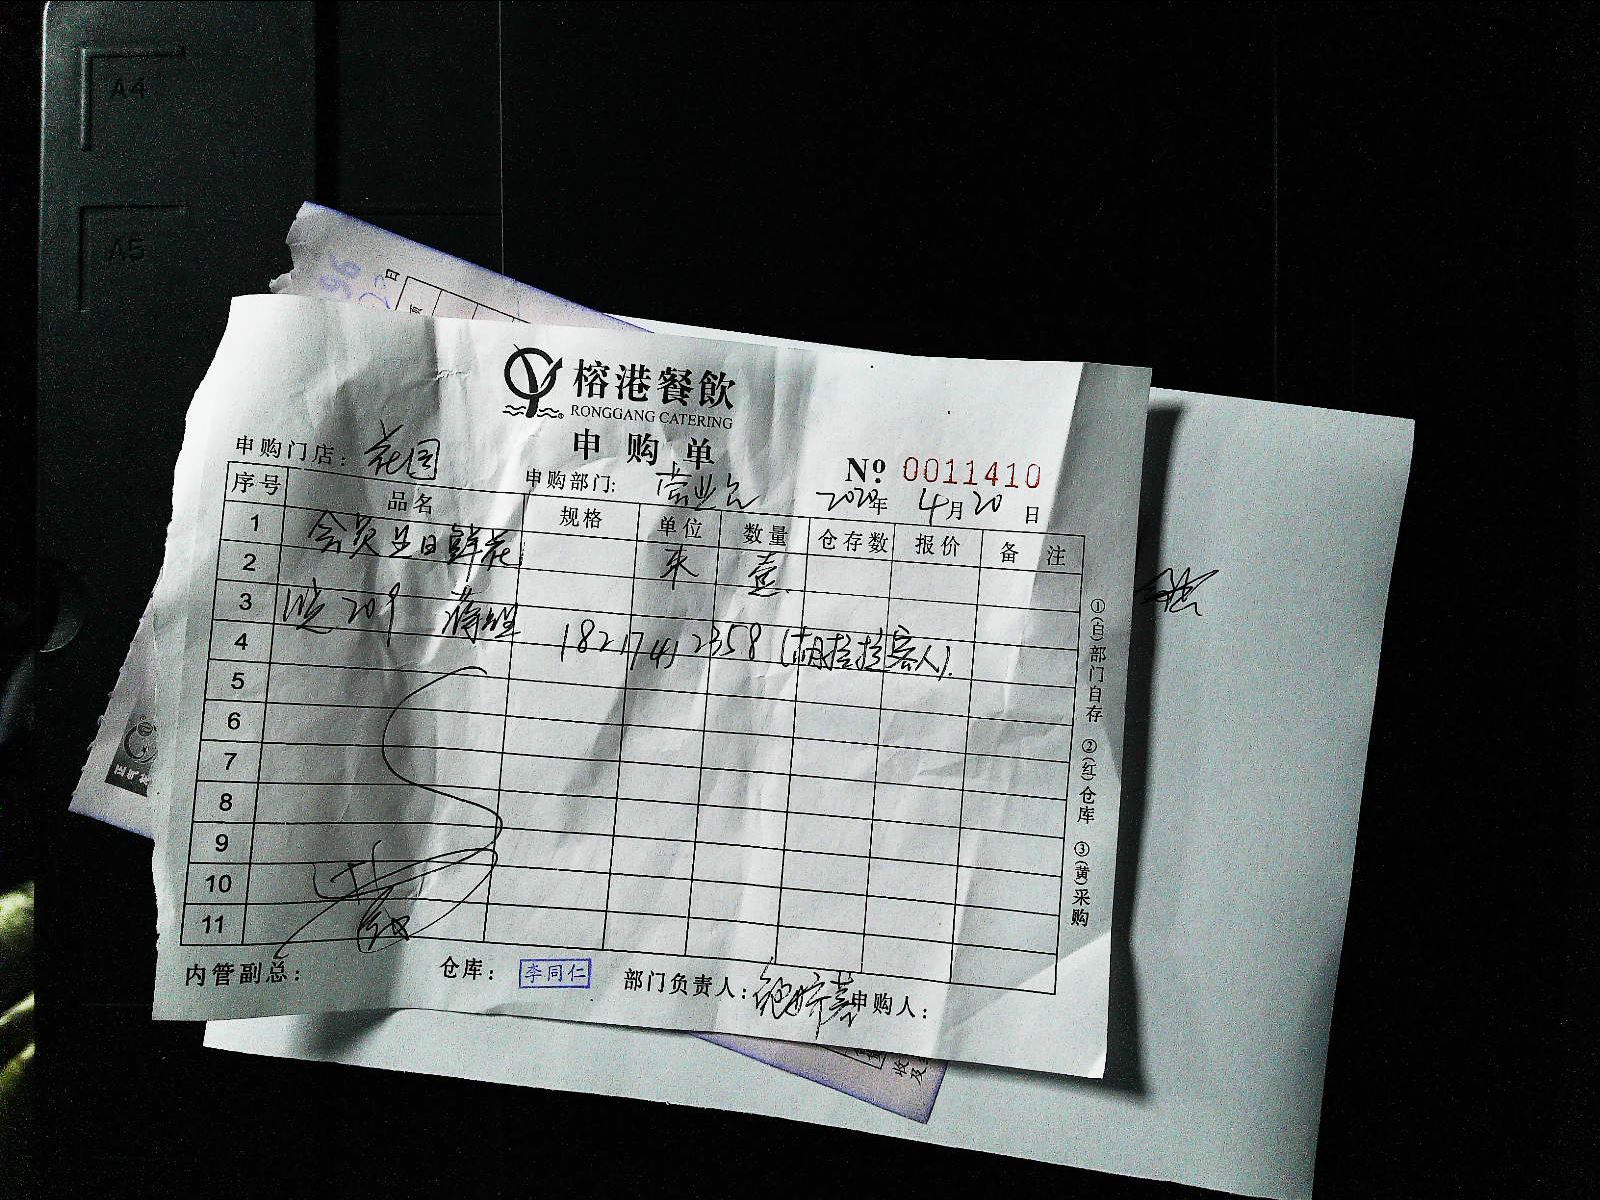 A4
A5
榕港餐飲
RONGGANG CATERING
申购单
申购门店：花园
申购部门：营业台
№ 0011410
2020年 4月20日
序号 品名 规格 单位 数量 仓存数 报价 备注
1 会员生日鲜花 束 壹
2
3 晚 209
4 18217412358 (胡拉拉客人).
5
6
7
8
9
10
11
①(白)部门自存 ②(红)仓库 ③(黄)采购
内管副总： 仓库：李同仁 部门负责人： 申购人：